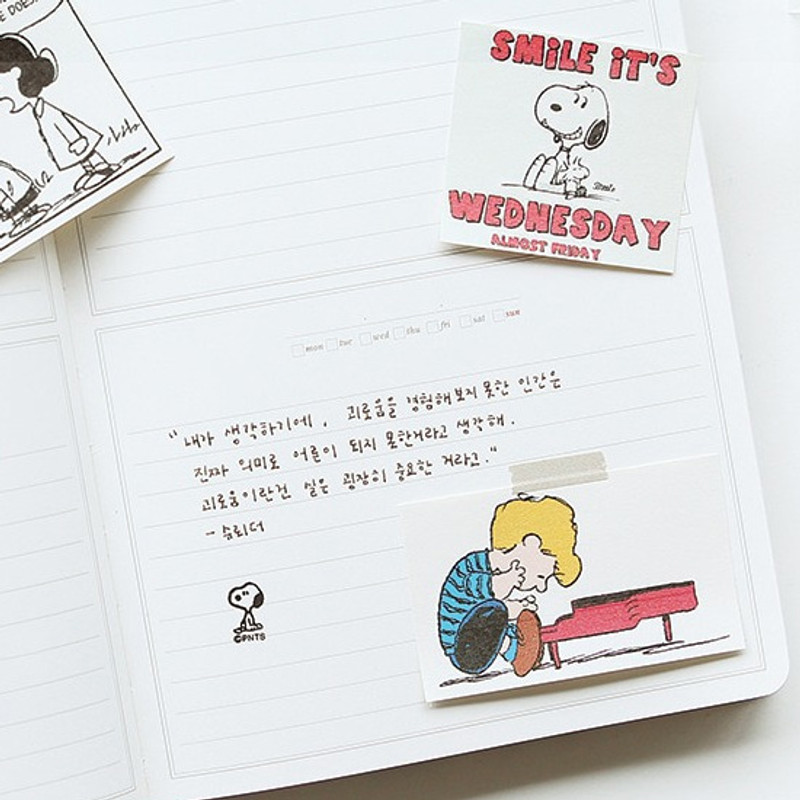 E DOES
SMILE IT'S
WEDNESDAY
ALMOST FRIDAY
mon tue wed thu fri sat sun
“내가 생각하기에, 괴로움을 경험해보지 못한 인간은
진짜 의미로 어른이 되지 못한거라고 생각해.
괴로움이란건 실은 굉장히 중요한 거라고.”
- 슈뢰더
©PNTS